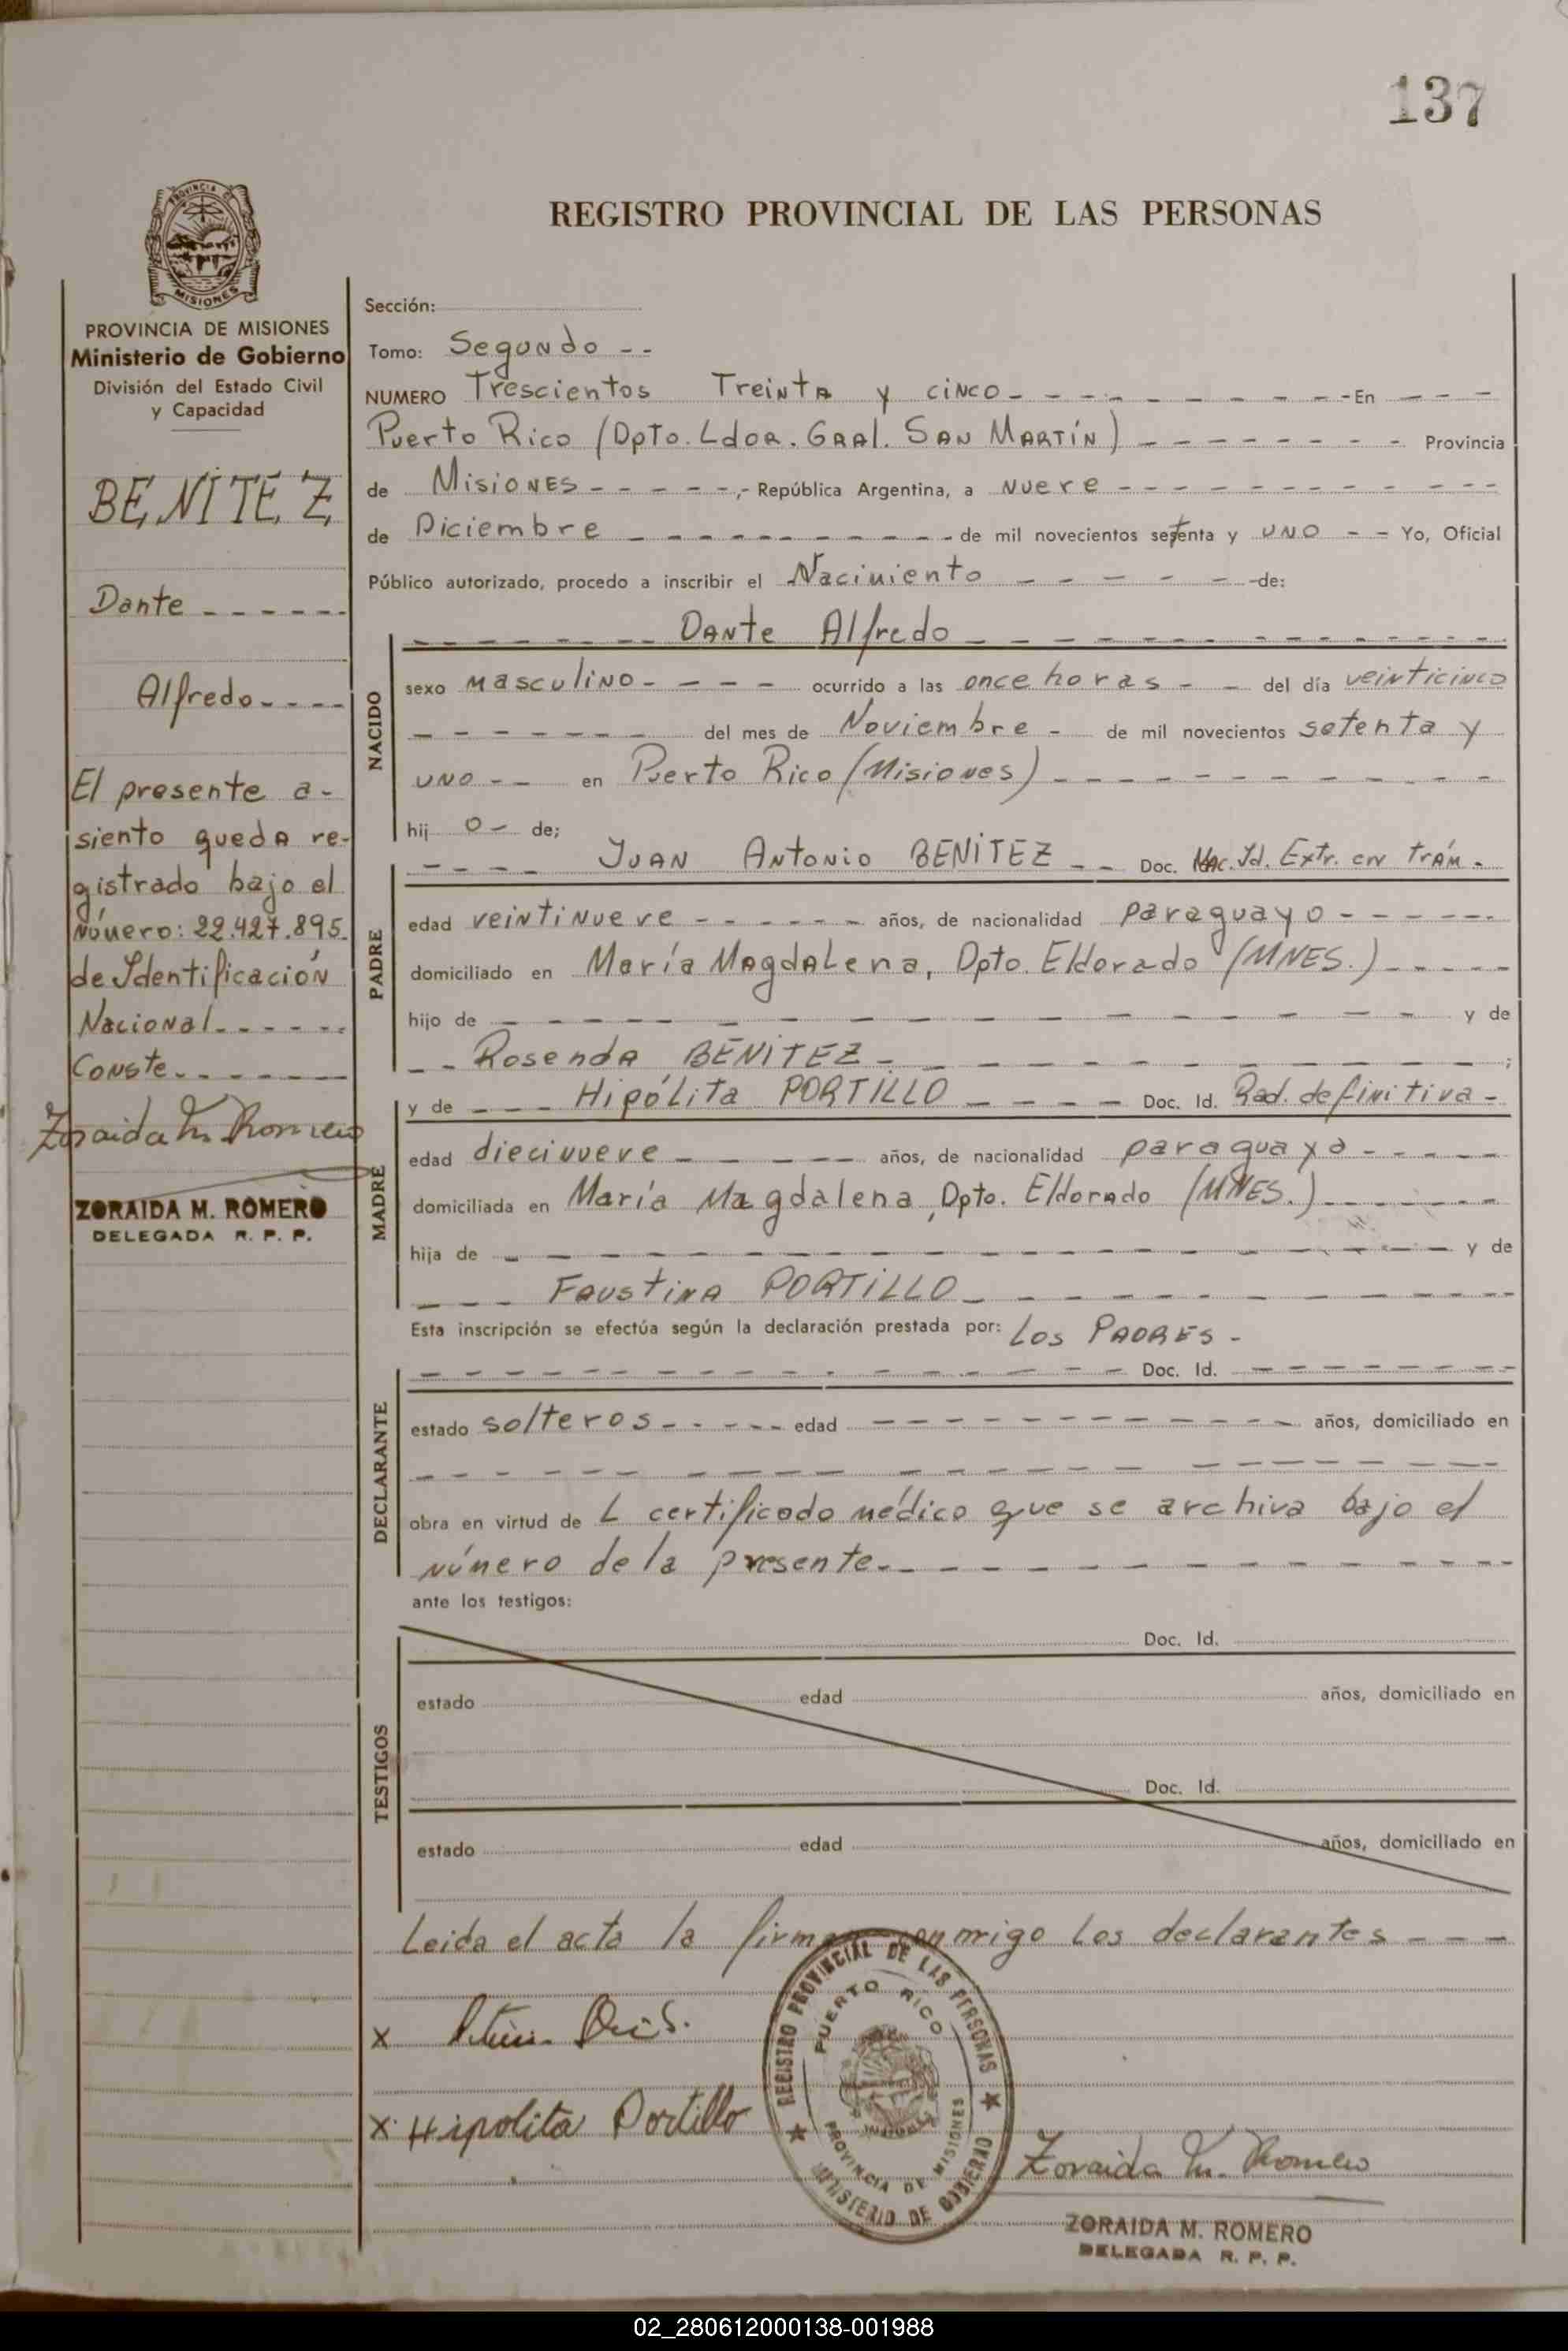 137
PROVINCIA DE
MISIONES
REGISTRO PROVINCIAL DE LAS PERSONAS
PROVINCIA DE MISIONES
Ministerio de Gobierno
División del Estado Civil
y Capacidad
BENITEZ
Dante - - - - - -
Alfredo - - - -
El presente a-
siento queda re-
gistrado bajo el
Número: 22.427.895.
de Identificación
Nacional - - - - - -
Conste - - - - - -
Zoraida M. Romero
ZORAIDA M. ROMERO
DELEGADA R. P. P.
Sección:
Tomo: Segundo - -
NUMERO Trescientos Treinta y cinco - - - - - - - - - En - - -
Puerto Rico (Dpto. Ldor. Gral. San Martín) - - - - - - - - Provincia
de Misiones - - - - - -,- República Argentina, a nueve - - - - - - - - - -
de Diciembre - - - - - - - - - - de mil novecientos setenta y uno - - Yo, Oficial
Público autorizado, procedo a inscribir el Nacimiento - - - - - - de:
NACIDO
- - - - - - - Dante Alfredo - - - - - - - - - - - - - -
sexo masculino - - - - ocurrido a las once horas - - del día veinticinco
- - - - - - - del mes de Noviembre - de mil novecientos setenta y
uno - - en Puerto Rico (Misiones) - - - - - - - - - - - -
hij o - de;
PADRE
- - - - Juan Antonio BENITEZ - - Doc. Id. Extr. en trám. -
edad veintinueve - - - - - - años, de nacionalidad paraguayo - - - - - -
domiciliado en María Magdalena, Dpto. Eldorado (MNES.) - - - - -
hijo de - - - - - - - - - - - - - - - y de
- - Rosenda BENITEZ - - - - - - - - - - - ;
MADRE
y de - - - Hipólita PORTILLO - - - - Doc. Id. Rad. definitiva -
edad diecinueve - - - - - - años, de nacionalidad paraguaya - - - - - -
domiciliada en María Magdalena, Dpto. Eldorado (MNES.) - - - - - - -
hija de - - - - - - - - - - - - - - - - y de
- - - Faustina PORTILLO - - - - - - - - - - - -
Esta inscripción se efectúa según la declaración prestada por: Los PADRES -
DECLARANTE
- - - - - - - - - - - - - - - - Doc. Id. - - - - - - - -
estado solteros - - - - - edad - - - - - - - - - - - años, domiciliado en
- - - - - - - - - - - - - - - - - - - - -
obra en virtud de L certificado médico que se archiva bajo el
número de la presente - - - - - - - - - - - - -
ante los testigos:
TESTIGOS
Doc. Id.
estado edad años, domiciliado en
Doc. Id.
estado edad años, domiciliado en
Leida el acta la firman conmigo los declarantes - - -
x
x Hipolita Portillo
REGISTRO PROVINCIAL DE LAS PERSONAS
PUERTO RICO
PROVINCIA DE MISIONES
MINISTERIO DE GOBIERNO
Zoraida M. Romero
ZORAIDA M. ROMERO
DELEGADA R. P. P.
02_280612000138-001988